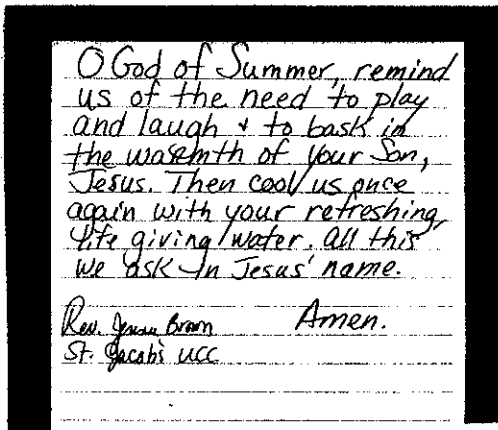 O God of Summer, remind
us of the need to play
and laugh & to bask in
the warmth of your Son,
Jesus. Then cool us once
again with your refreshing,
life giving water. All this
we ask in Jesus' name.
Amen.
Rev. Brown
St. Jacob's UCC